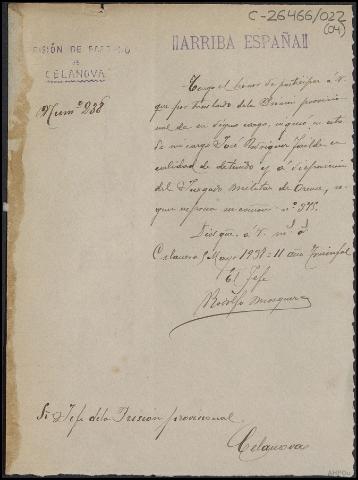 C-26466/022
(04)
PRISIÓN DE PARTIDO
DE
CELANOVA
¡¡ARRIBA ESPAÑA!!
Num.º 238
Tengo el honor de participar a V.
que por traslado de la Prisión provincial
de su digno cargo, ingresó en esta
de mi cargo José Rodriguez en
calidad de detenido y á disposición
del Juzgado Militar de Orense, se-
gun expresa su comon. nº 371.
Dios gue. á V. ms. as.
Celanova 9 Mayo 1937 = II año Triunfal
El Jefe
Rodolfo Mosquera
Sr. Jefe de la Prisión provisional
Celanova
AHPOu